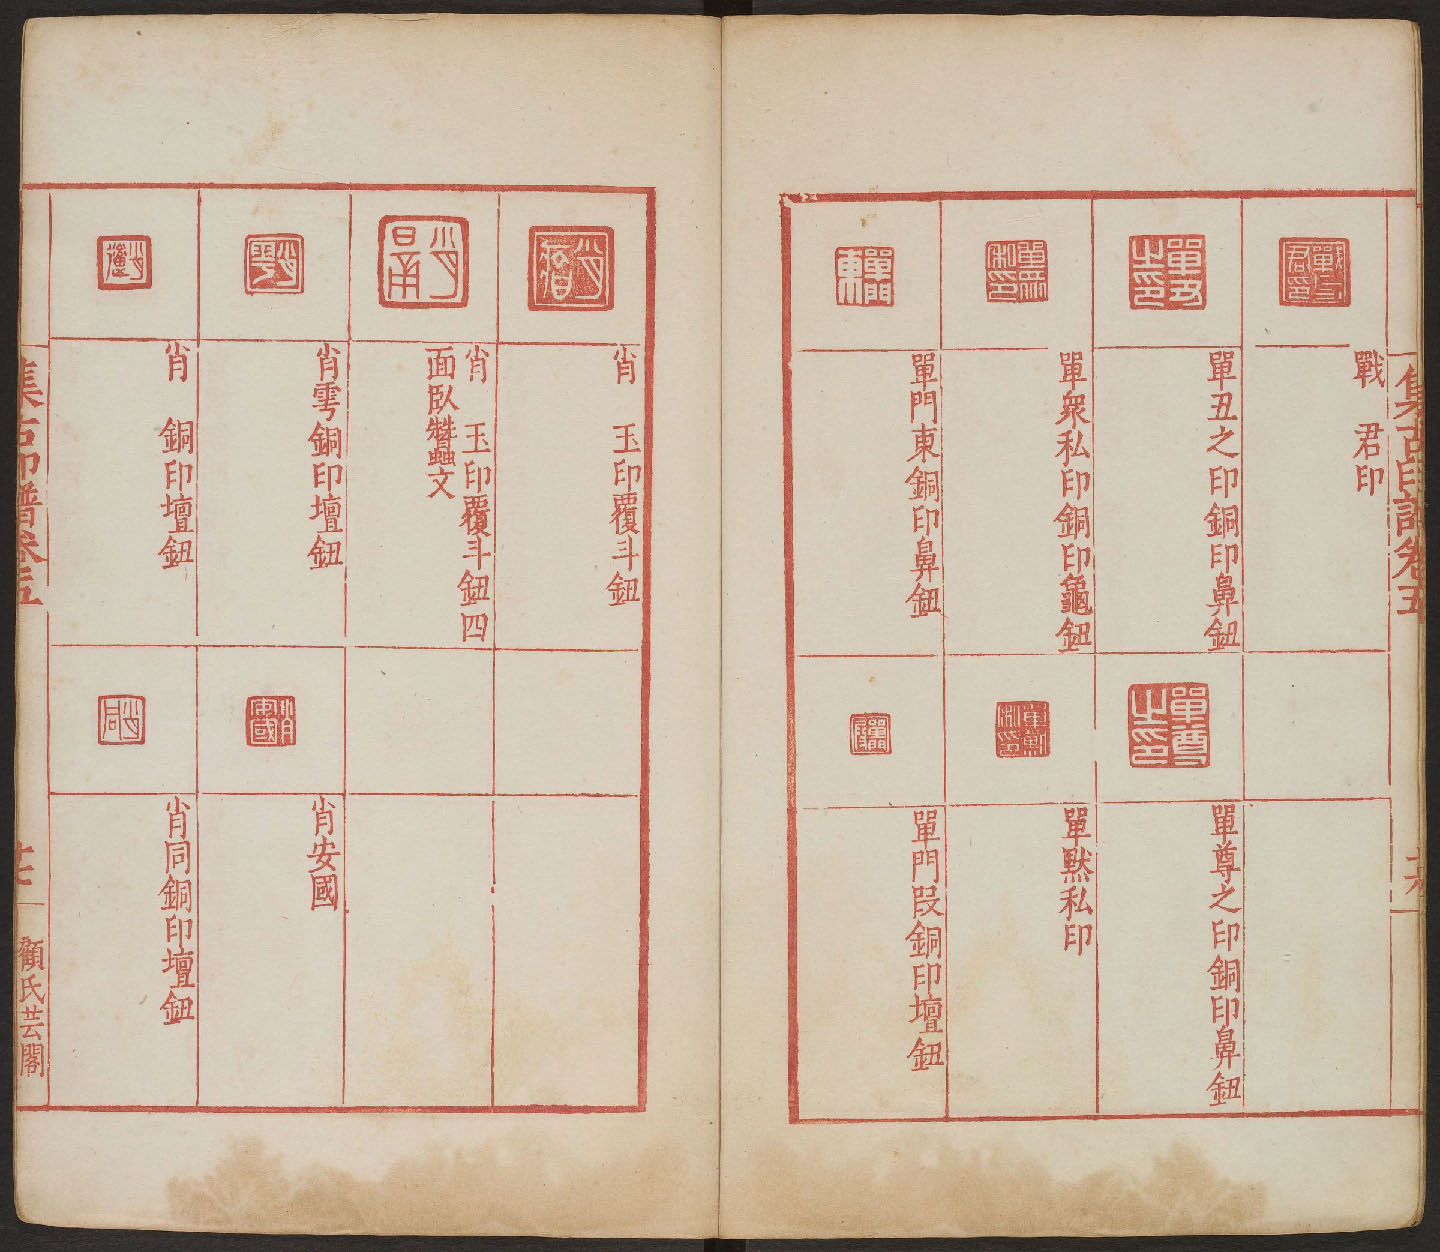 集古印譜卷五
戰　君印
單丑之印銅印鼻鈕
單衆私印銅印龜鈕
單門東銅印鼻鈕
單尊之印銅印鼻鈕
單黙私印
單門叚銅印壇鈕
肖　玉印覆斗鈕
肖　玉印覆斗鈕四
面臥蠶文
肖雩銅印壇鈕
肖　銅印壇鈕
肖安國
肖同銅印壇鈕
集古印譜卷五
顧氏芸閣